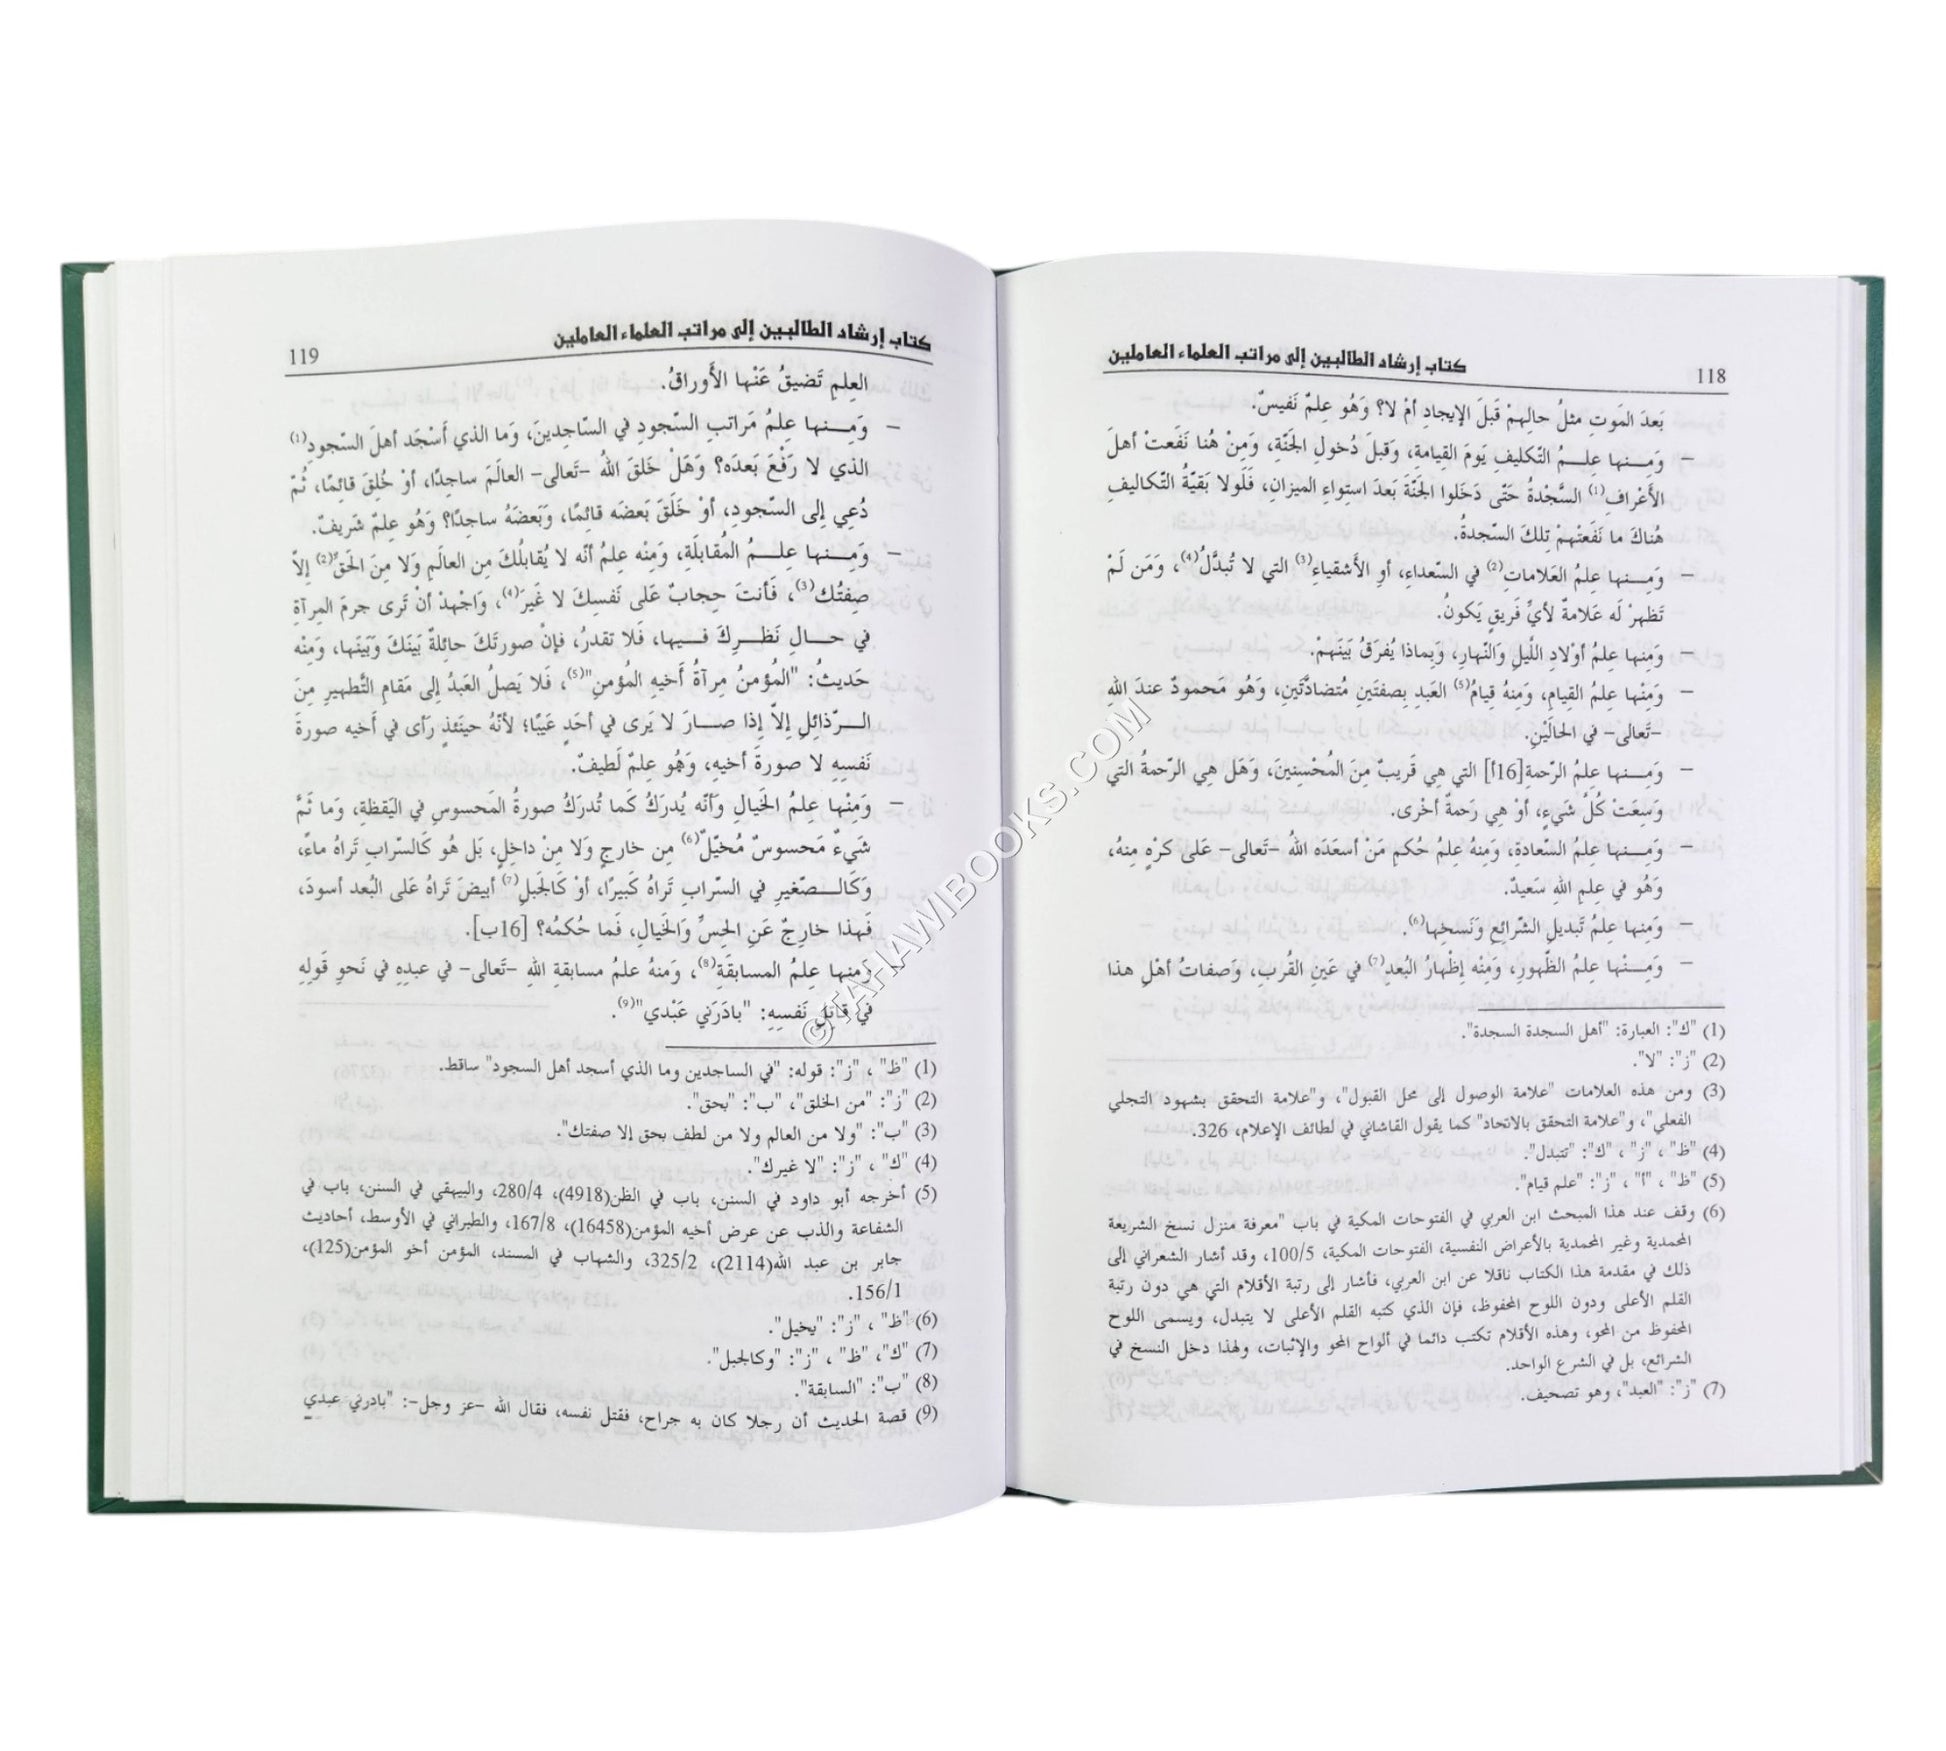 118
كتاب إرشاد الطالبين إلى مراتب العلماء العاملين
بَعدَ المَوتِ مثلُ حالِهمْ قَبلَ الإيجادِ أمْ لا؟ وَهُو عِلمٌ نَفيسٌ.
– وَمِـــنها عِلـــمُ التّكليفِ يَومَ القِيامةِ، وَقبلَ دُخولِ الجَنّةِ، وَمِنْ هُنا نَفَعتْ أهلَ
الأَعْرافِ(1) السَّجْدةُ حَتّى دَخَلوا الجَنّةَ بَعدَ استِواءِ الميزانِ، فَلَولا بَقيّةُ التّكاليفِ
هُناكَ ما نَفَعتْهمْ تِلكَ السّجدةُ.
– وَمِـــنها عِلمُ العَلاماتِ(2) في السّعداءِ، أوِ الأَشقياءِ(3) التي لا تُبدَّلُ(4)، وَمَن لَمْ
تَظهرْ لَه عَلامةٌ لأيِّ فَريقٍ يَكونُ.
– وَمِنها عِلمُ أوْلادِ اللَّيلِ وَالنّهارِ، وَبِماذا يُفرَقُ بَينَهمْ.
– وَمِنْها عِلمُ القِيامِ، وَمِنهُ قِيامُ(5) العَبدِ بِصفتَينِ مُتضادَّتَينِ، وَهُو مَحمودٌ عندَ اللهِ
–تَعالى– في الحالَيْنِ.
– وَمِـــنها عِلمُ الرّحمةِ[16أ] التي هِي قَريبٌ مِنَ المُحْسِنينَ، وَهَل هِي الرّحمةُ التي
وَسِعَتْ كُلَّ شَيءٍ، أوْ هِي رَحمةٌ أخْرى.
– وَمِـــنها عِلمُ السّعادةِ، وَمِنهُ عِلمُ حُكمِ مَنْ أسعَدَه اللهُ –تَعالى– عَلى كُرْهٍ مِنهُ،
وَهُو في عِلمِ اللهِ سَعيدٌ.
– وَمِنها عِلمُ تَبديلِ الشّرائِعِ وَنَسخِها(6).
– وَمِـــنْها عِلمُ الظّهورِ، وَمِنْه إِظْهارُ البُعدِ(7) في عَينِ القُربِ، وَصَفاتُ أهْلِ هذا
(1) "ك": العبارة: "أهل السجدة السجدة".
(2) "ز": "لا".
(3) ومن هذه العلامات "علامة الوصول إلى محل القبول"، و"علامة التحقق بشهود التجلي
الفعلي"، و"علامة التحقق بالاتحاد" كما يقول القاشاني في لطائف الإعلام، 326.
(4) "ظ" ، "ز" ، "ك": "تتبدل".
(5) "ظ" ، "أ" ، "ز": "علم قيام".
(6) وقف عند هذا المبحث ابن العربي في الفتوحات المكية في باب "معرفة منزل نسخ الشريعة
المحمدية وغير المحمدية بالأعراض النفسية، الفتوحات المكية، 100/5، وقد أشار الشعراني إلى
ذلك في مقدمة هذا الكتاب ناقلا عن ابن العربي، فأشار إلى رتبة الأقلام التي هي دون رتبة
القلم الأعلى ودون اللوح المحفوظ، فإن الذي كتبه القلم الأعلى لا يتبدل، ويسمى اللوح
المحفوظ من المحو، وهذه الأقلام تكتب دائما في ألواح المحو والإثبات، ولهذا دخل النسخ في
الشرائع، بل في الشرع الواحد.
(7) "ز": "العبد"، وهو تصحيف.
كتاب إرشاد الطالبين إلى مراتب العلماء العاملين
119
العِلمِ تَضيقُ عَنْها الأَوراقُ.
– وَمِـــنها عِلمُ مَراتبِ السّجودِ في السّاجِدينَ، وَما الذي أَسْجَد أهلَ السّجودِ(1)
الذي لا رَفْعَ بَعدَه؟ وَهَلْ خَلقَ اللهُ –تَعالى– العالَمَ ساجِدًا، أوْ خُلِقَ قائِمًا، ثُمّ
دُعِي إلى السّجودِ، أوْ خَلَقَ بَعضَه قائمًا، وَبَعضَهُ ساجِدًا؟ وَهُو عِلمٌ شَريفٌ.
– وَمِـــنها عِلـــمُ المُقابلَةِ، وَمِنْه عِلمُ أنّه لا يُقابلُكَ مِن العالَمِ وَلا مِنَ الحَقِّ(2) إِلاّ
صِفتُك(3)، فَأنتَ حِجابٌ عَلى نَفسِكَ لا غَيرَ(4)، وَاجْهدْ أنْ تَرى جرمَ المِرآةِ
في حـــالِ نَظـرِكَ فـــيها، فَلا تقدرُ، فإنْ صورتَكَ حائِلةٌ بَينَكَ وَبَينَها، وَمِنْه
حَديثُ: "المُؤمنُ مِرآةُ أَخيهِ المُؤمنِ"(5)، فَلا يَصلُ العَبدُ إلى مَقامِ التَّطهيرِ مِنَ
الـــرّذائلِ إلاّ إذا صـــارَ لا يَرى في أحَدٍ عَيبًا؛ لأنّهُ حينَئذٍ رَأى في أَخيه صورةَ
نَفسِهِ لا صورةَ أخيهِ، وَهُو عِلمٌ لَطيفٌ.
– وَمِنْها عِلمُ الخَيالِ وَأنّه يُدرَكُ كَما تُدرَكُ صورةُ المَحسوسِ في اليَقظةِ، وَما ثَمَّ
شَيءٌ مَحسوسٌ مُخيّلٌ(6) مِن خارجٍ وَلا مِنْ داخِلٍ، بَل هُو كَالسّرابِ تَراهُ ماءً،
وَكَالـــصّغيرِ في السّرابِ تَراهُ كَبيرًا، أوْ كَالجَبلِ(7) أبيضَ تَراهُ عَلى البُعد أسودَ،
فَهذا خارِجٌ عَنِ الحِسِّ وَالخَيالِ، فَما حُكمُه؟ [16ب].
وَمِنها عِلمُ المسابقَةِ(8)، وَمنهُ علمُ مسابقةِ اللهِ –تَعالى– في عبدِهِ في نَحوِ قَولِهِ
في قاتِلِ نَفسِهِ: "بادَرَني عَبْدي"(9).
(1) "ظ" ، "ز": قوله: "في الساجدين وما الذي أسجد أهل السجود" ساقط.
(2) "ز": "من الخلق"، "ب": "بحق".
(3) "ب": "ولا من العالم ولا من لطف بحق إلا صفتك".
(4) "ك" ، "ز": "لا غيرك".
(5) أخرجه أبو داود في السنن، باب في الظن(4918)، 280/4، والبيهقي في السنن، باب في
الشفاعة والذب عن عرض أخيه المؤمن(16458)، 167/8، والطبراني في الأوسط، أحاديث
جابر بن عبد الله(2114)، 325/2، والشهاب في المسند، المؤمن أخو المؤمن(125)،
156/1.
(6) "ظ" ، "ز": "يخيل".
(7) "ك"، "ظ" ، "ز": "وكالجبل".
(8) "ب": "السابقة".
(9) قصة الحديث أن رجلا كان به جراح، فقتل نفسه، فقال الله –عز وجل–: "بادرني عبدي
© TAHAWIBOOKS.COM